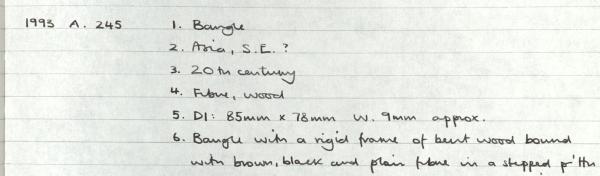 1993 A. 245 1. Bangle
2. Asia, S.E. ?
3. 20th century
4. Fibre, wood
5. DI: 85mm x 78mm W. 9mm approx.
6. Bangle with a rigid frame of bent wood bound
with brown, black and plain fibre in a stepped p'ttn